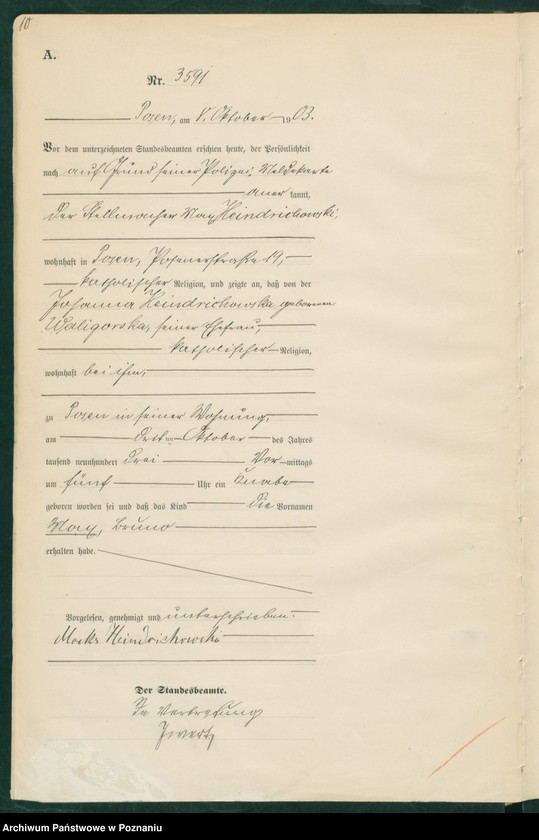 10
A.
Nr. 3591
Posen, am 8. Oktober 1903.
Vor dem unterzeichneten Standesbeamten erschien heute, der Persönlichkeit
nach auf Grund seiner Polizei-Meldekarte
aner kannt,
der Stellmacher Max Heindrichowski,
wohnhaft in Posen, Posenerstraße 19,
katholischer Religion, und zeigte an, daß von der
Johanna Heindrichowska geborenen
Waligorska, seiner Ehefrau,
katholischer Religion,
wohnhaft bei ihm,
zu Posen in seiner Wohnung,
am dritten Oktober des Jahres
tausend neunhundert drei Vor-mittags
um fünf Uhr ein Knabe
geboren worden sei und daß das Kind die Vornamen
Max, Bruno
erhalten habe.
Vorgelesen, genehmigt und unterschrieben.
Maks Heindrichowski
Der Standesbeamte.
In Vertretung
Archiwum Państwowe w Poznaniu